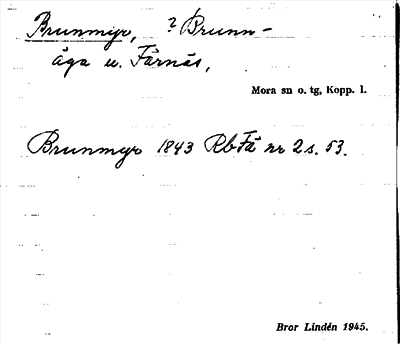 Brunmyr, ? Brunn-
äga u. Färnäs,
Mora sn o. tg, Kopp. l.
Brunmyr 1843 RbFä nr 2 s. 53.
Bror Lindén 1945.